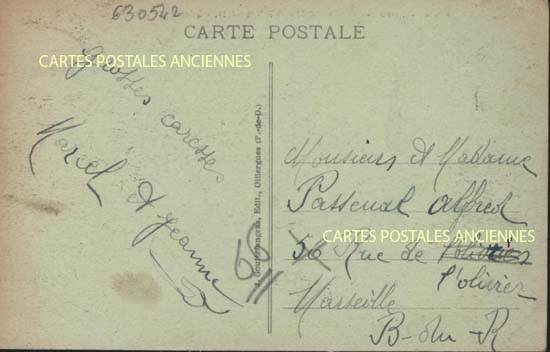 630542
CARTE POSTALE
CARTES POSTALES ANCIENNES
grosses caresses
Marcel et Jeanne
Edit., Olliergues (P.-de-D.)
Monsieur et Madame
Alfred
CARTES POSTALES ANCIENNES
56 Rue de
l'olivier
Marseille
B-du-R